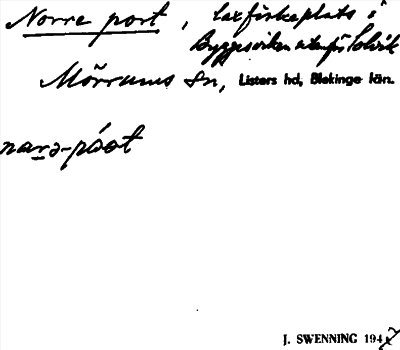 Norre port, laxfiskeplats i
Byggesviken utanför Solvik
Mörrums sn, Listers hd, Blekinge län.
narə-póot
J. SWENNING 1947